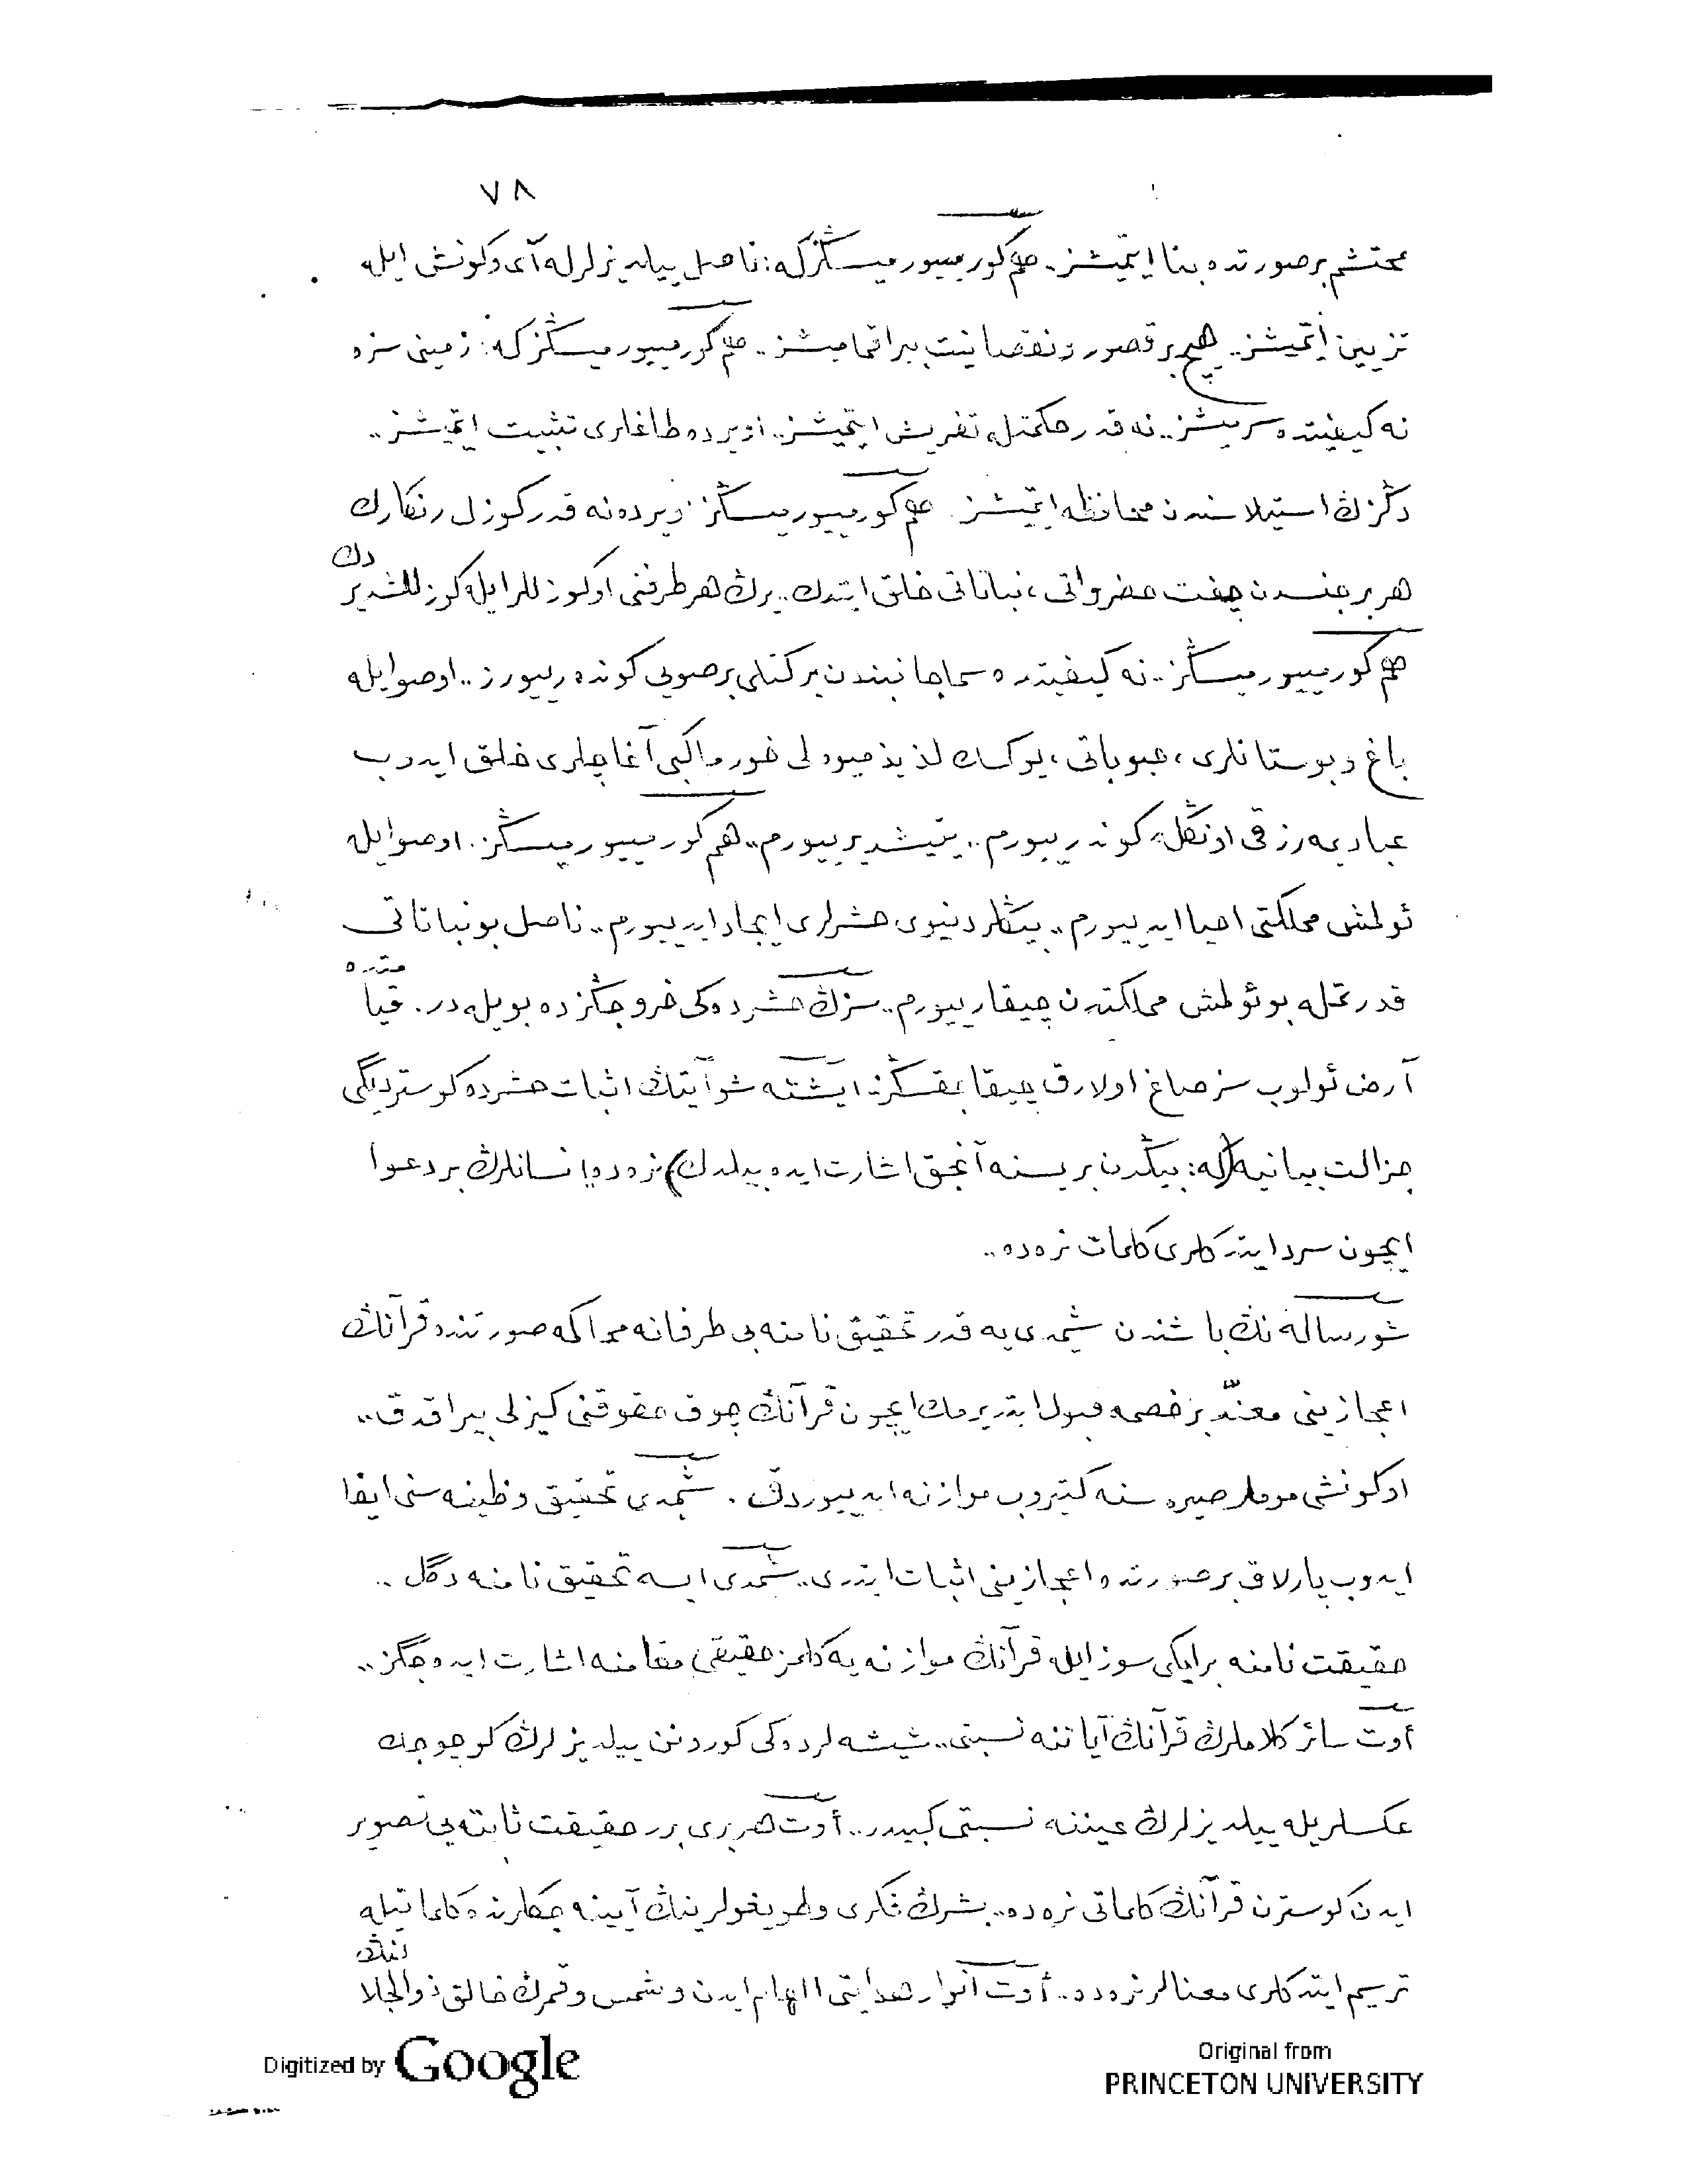 ٧٨
محتشم بر صورتده بنا ایتمیشز.. هم کورمییورمیسڭزکه: ناصل ییلدیزلرله آی وکونش ایله
تزیین ایتمیشز.. هیچ بر قصور ونقصانیت بیراقمامیشز.. هم کورمییورمیسڭزکه: زمینی سزه
نه کیفیتده سرمیشز.. نه قدر حکمتله تفریش ایتمیشز.. اویرده طاغلری تثبیت ایتمیشز..
دڭزڭ استیلاسندن محافظه ایتمیشز. هم کورمییورمیسڭز: ویرده نه قدر کوزل رنکارك
هر بر جنسدن چفت حضرواتی، نباتاتی خلق ایتدك.. یرڭ هر طرفنی اوکوزللر ایله کوزللشدیردك
هم کورمییورمیسڭز.. نه کیفیتده سما جانبندن برکتلی بر صویی کوندهرییورز.. اوصو ایله
باغ وبوستانلری، حبوباتی، یوکسك لذیذ میوه لی خورما کبی آغاچلری خلق ایدوب
عبادیمه رزقی اونڭله کوندرییورم.. یتیشدیرییورم.. هم کورمییورمیسڭز. اوصو ایله
ئولمش مملکتی احیا ایدییورم.. بیڭلر دنیوی حشرلری ایجاد ایدییورم.. ناصل بونباتاتی
قدرتمله بو ئولمش مملکتدن چیقارییورم.. سزڭ حشرده کی خروجڭزده بویله در. قیامتده
آرض ئولوب سز صاغ اولارق چیقاجقسڭز. ایشته شو آیتڭ اثبات حشرده کوستردیگی
جزالت بیانیه (که: بیڭدن بریسنه آنجق اشارت ایده بیلدك) نره ده! انسانلرڭ بر دعوا
ایچون سرد ایتدکلری کلمات نره ده..
شو رساله نڭ باشندن شیمدی یه قدر تحقیق نامنه بی طرفانه محاکمه صورتنده قرآنڭ
اعجازینی معنّد بر خصمه قبول ایتدیرمك ایچون قرآنڭ چوق حقوقنی کیزلی بیراقدق..
اوکونشی موملر صیره سنه کتیروب موازنه ایدییوردق. شیمدی تحقیق وظیفه سنی ایفا
ایدوب پارلاق بر صورتده اعجازینی اثبات ایتدی.. شیمدی ایسه تحقیق نامنه دگل..
حقیقت نامنه بر ایکی سوز ایله قرآنڭ موازنه یه کلمز حقیقی مقامنه اشارت ایده جگز..
أوت سائر کلاملرڭ قرآنڭ آیاتنه نسبتی.. شیشه لرده کی کورونن ییلدیزلرڭ کوچوجك
عکسلریله ییلدیزلرڭ عیننه نسبتی کبیدر.. أوت هر بری برر حقیقت ثابته یی تصویر
ایدن کوسترن قرآنڭ کلماتی نره ده.. بشرڭ فکری وطویغولرینڭ آیینه جکلرنده کلماتیله
ترسیم ایتدکلری معنالر نره ده.. أوت آنوار هدایتی الهام ایدن وشمس وقمرڭ خالق ذوالجلالنڭ
Digitized by Google
Original from
PRINCETON UNIVERSITY